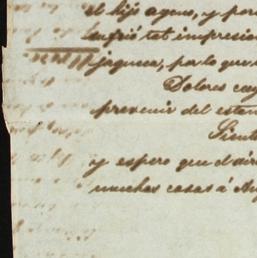 el hijo ageno, y por
sufrió tal impresion
jaqueca, por lo que
Dolores cay
prevenir del estan
Sient
y espero que d
muchas cosas á Au